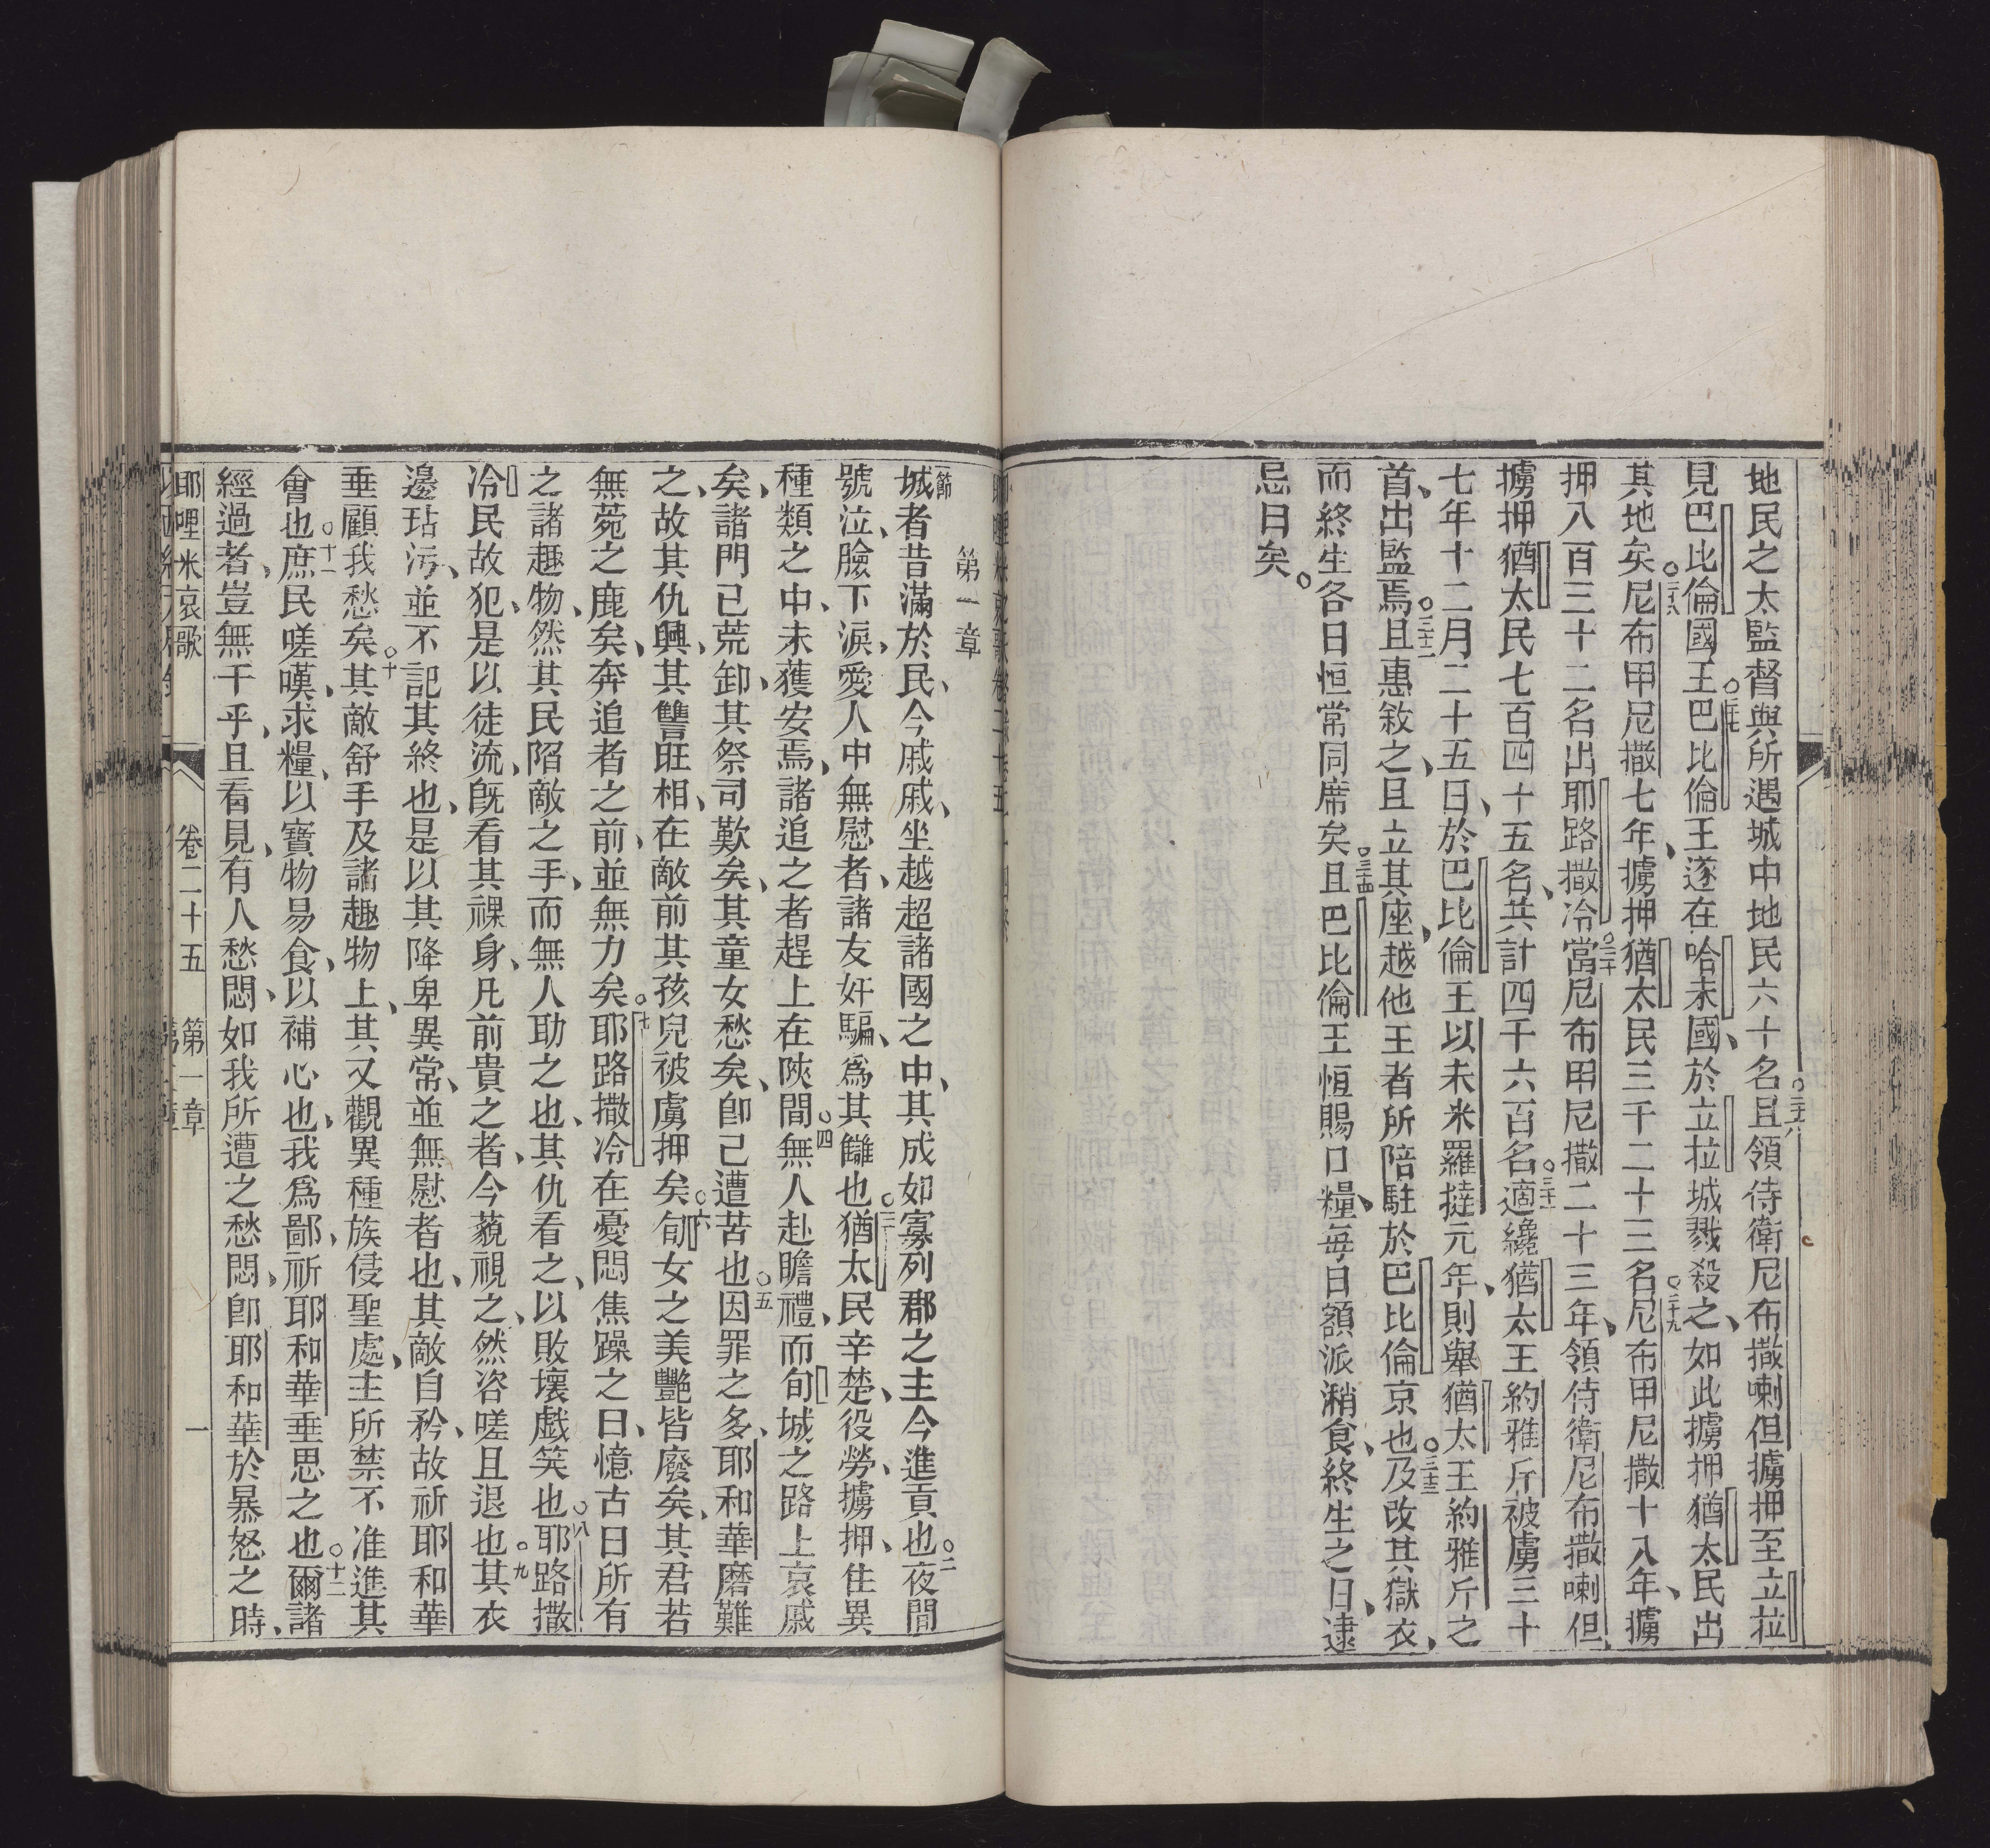 地民之太監督與所遇城中地民六十名○二十六且領侍衛尼布撒喇但擄押至立拉
見巴比倫國王○二十七巴比倫王遂在哈未國、於立拉城戮殺之、如此擄押猶太民出
其地矣○二十八尼布甲尼撒七年、擄押猶太民三千二十三名○二十九尼布甲尼撒十八年、擄
押八百三十二名出耶路撒冷○三十當尼布甲尼撒二十三年、領侍衛尼布撒喇但
擄押猶太民七百四十五名、共計四千六百名○三十一適纔猶太王約雅斤被虜三十
七年十二月二十五日、於巴比倫王以未米羅撻元年、則舉猶太王約雅斤之
首、出監焉○三十二且惠敘之、且立其座、越他王者所陪駐於巴比倫京也○三十三及改其獄衣、
而終生各日恒常同席矣○三十四且巴比倫王恒賜口糧、每日額派消食、終生之日、逮
忌日矣。
第一章
節
城者昔滿於民、今戚戚、坐越超諸國之中、其成如寡列郡之主今進貢也○二夜間
號泣、臉下淚、愛人中無慰者、諸友奸騙、爲其讎也○三猶太民辛楚、役勞、擄押、住異
種類之中、未獲安焉、諸追之者趕上在陝間○四無人赴瞻禮、而旬城之路上哀戚
矣、諸門已荒卸、其祭司歎矣、其童女愁矣、卽己遭苦也○五因罪之多、耶和華磨難
之、故其仇興、其讐旺相、在敵前其孩兒被虜押矣○六旬女之美艷皆廢矣、其君若
無菀之鹿矣、奔追者之前、並無力矣○七耶路撒冷在憂悶焦躁之日、憶古日所有
之諸趣物、然其民陷敵之手、而無人助之也、其仇看之、以敗壞戯笑也○八耶路撒
冷民故犯、是以徒流、旣看其裸身、凡前貴之者、今藐視之、然咨嗟且退也○九其衣
邊玷污、並不記其終也、是以其降卑異常、並無慰者也、其敵自矜、故祈耶和華
垂顧我愁矣○十其敵舒手及諸趣物上、其又觀異種族侵聖處、主所禁不准進其
會也○十一庶民嗟嘆、求糧、以寶物易食、以補心也、我爲鄙、祈耶和華垂思之也○十二爾諸
經過者、豈無干乎、且看見、有人愁悶、如我所遭之愁悶、卽耶和華於暴怒之時、
耶哩米哀歌 卷二十五 第一章 一